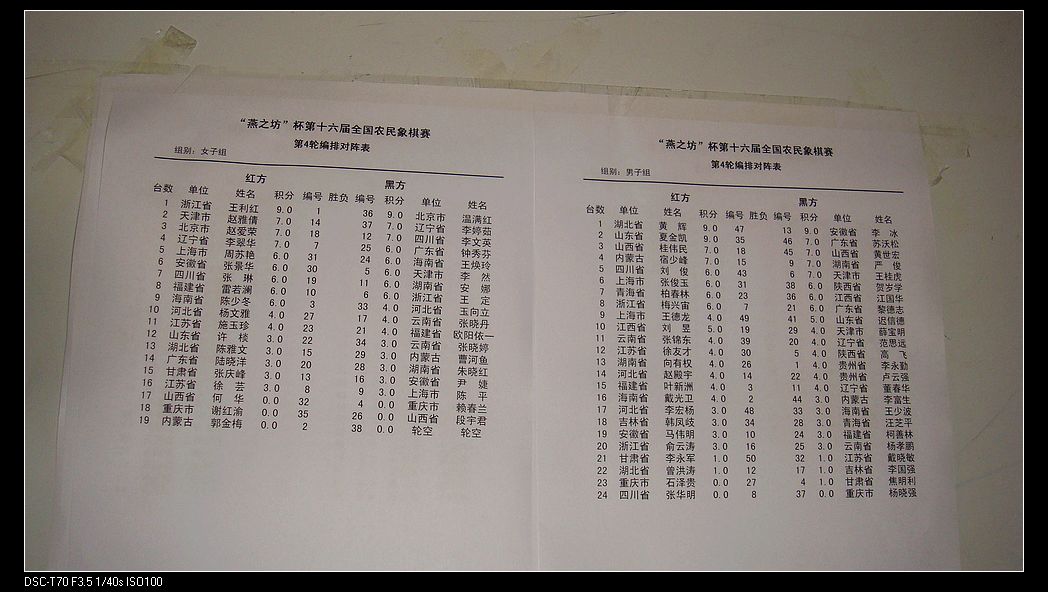 “燕之坊”杯第十六届全国农民象棋赛
第4轮编排对阵表
组别：女子组
红方 黑方
台数 单位 姓名 积分 编号 胜负 编号 积分 单位 姓名
1 浙江省 王利红 9.0 1 36 9.0 北京市 温满红
2 天津市 赵雅倩 7.0 14 37 7.0 辽宁省 李婷茹
3 北京市 赵爱荣 7.0 18 12 7.0 四川省 李文英
4 辽宁省 李翠华 7.0 7 25 6.0 广东省 钟秀芬
5 上海市 周苏艳 6.0 31 24 6.0 海南省 王焕玲
6 安徽省 张景华 6.0 30 5 6.0 天津市 李 然
7 四川省 张 琳 6.0 19 11 6.0 湖南省 安 娜
8 福建省 雷若澜 6.0 10 6 6.0 浙江省 王 定
9 海南省 陈少冬 6.0 3 33 4.0 河北省 玉向立
10 河北省 杨文雅 4.0 27 17 4.0 云南省 张晓丹
11 江苏省 施玉珍 4.0 23 21 4.0 福建省 欧阳依一
12 山东省 许 棪 3.0 22 34 3.0 云南省 张晓婷
13 湖北省 陈雅文 3.0 15 29 3.0 内蒙古 曹河鱼
14 广东省 陆晓洋 3.0 20 28 3.0 湖南省 朱晓红
15 甘肃省 张庆峰 3.0 13 16 3.0 安徽省 尹 婕
16 江苏省 徐 芸 3.0 8 9 3.0 上海市 陈 平
17 山西省 何 华 0.0 32 4 0.0 重庆市 赖春兰
18 重庆市 谢红渝 0.0 35 26 0.0 山西省 段宇君
19 内蒙古 郭金梅 0.0 2 38 0.0 轮空 轮空
“燕之坊”杯第十六届全国农民象棋赛
第4轮编排对阵表
组别：男子组
红方 黑方
台数 单位 姓名 积分 编号 胜负 编号 积分 单位 姓名
1 湖北省 黄 辉 9.0 47 13 9.0 安徽省 李 冰
2 山东省 夏金凯 9.0 35 46 7.0 广东省 苏沃松
3 山西省 桂伟民 7.0 18 45 7.0 山西省 黄世宏
4 内蒙古 宿少峰 7.0 15 9 7.0 湖南省 严 俊
5 四川省 刘 俊 6.0 43 6 7.0 天津市 王桂虎
6 上海市 张俊玉 6.0 31 38 6.0 陕西省 贺岁学
7 青海省 柏春林 6.0 23 36 6.0 江西省 江国华
8 浙江省 梅兴宙 6.0 7 21 6.0 广东省 黎德志
9 上海市 王德龙 4.0 49 41 5.0 山东省 迟信德
10 江西省 刘 昱 5.0 19 29 4.0 天津市 薛宝明
11 云南省 张锦东 4.0 39 20 4.0 辽宁省 范思远
12 江苏省 徐友才 4.0 30 5 4.0 陕西省 高 飞
13 湖南省 向有权 4.0 26 1 4.0 贵州省 李永勤
14 河北省 赵殿宇 4.0 14 22 4.0 贵州省 卢云强
15 福建省 叶新洲 4.0 3 11 4.0 辽宁省 董春华
16 海南省 戴光卫 4.0 2 44 3.0 内蒙古 李富生
17 河北省 李宏杨 3.0 48 33 3.0 海南省 王少波
18 吉林省 韩凤岐 3.0 34 28 3.0 青海省 汪芝平
19 安徽省 马伟明 3.0 10 24 3.0 福建省 柯善林
20 浙江省 俞云涛 3.0 16 25 3.0 云南省 杨孝鹏
21 甘肃省 李永军 1.0 50 32 1.0 江苏省 戴晓敏
22 湖北省 曾洪涛 1.0 12 17 1.0 吉林省 李国强
23 重庆市 石泽贵 0.0 27 4 1.0 甘肃省 焦明利
24 四川省 张华明 0.0 8 37 0.0 重庆市 杨晓强
DSC-T70 F3.5 1/40s ISO100